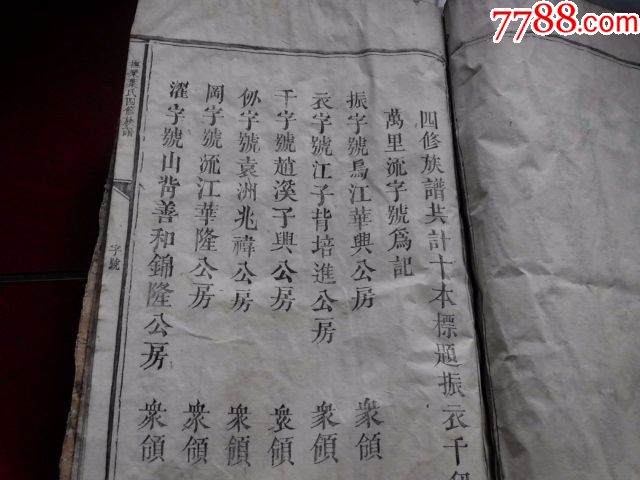 7788.com
四修族譜共計十本標題振衣千仭
萬里流字號為記
振字號烏江華興公房 衆領
衣字號江子背培進公房 衆領
千字號趙溪子興公房 衆領
仭字號袁洲兆禕公房 衆領
岡字號流江華隆公房 衆領
濯字號山背善和錦隆公房 衆領
葉氏四修族譜
字號